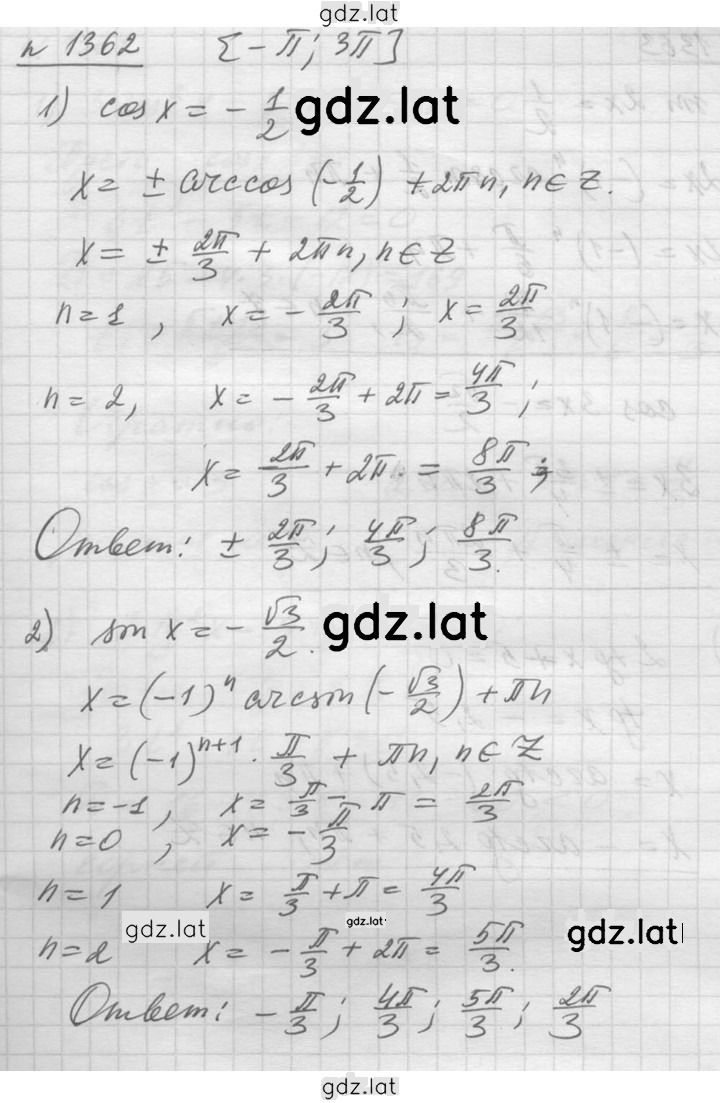 gdz.lat
n 1362 [-π; 3π]
1) cos x = - 1/2 gdz.lat
x = ± arccos (-1/2) + 2πn, n ∈ Z.
x = ± 2π/3 + 2πn, n ∈ Z
n = 1, x = - 2π/3; x = 2π/3
n = 2, x = - 2π/3 + 2π = 4π/3;
x = 2π/3 + 2π. = 8π/3;
Ответ: ± 2π/3; 4π/3; 8π/3.
2) sin x = - √3/2. gdz.lat
x = (-1)ⁿ arcsin (-√3/2) + πn
x = (-1)ⁿ⁺¹ · π/3 + πn, n ∈ Z
n = -1, x = π/3 - π = 2π/3
n = 0, x = - π/3
n = 1 x = π/3 + π = 4π/3
gdz.lat gdz.lat gdz.lat
n = 2 x = - π/3 + 2π = 5π/3.
Ответ: - π/3; 4π/3; 5π/3; 2π/3
gdz.lat